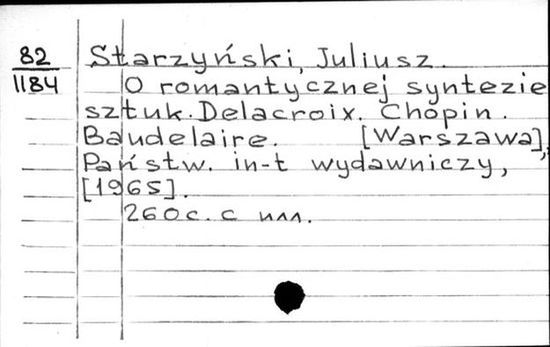 82
1184
Starzyński, Juliusz.
O romantycznej syntezie
sztuk. Delacroix. Chopin.
Baudelaire. [Warszawa],
Państw. in-t wydawniczy,
[1965].
260с. с илл.